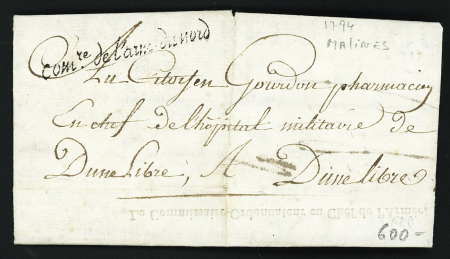 1794
MALINES
Comre de l'armée du nord
Au Citoyen Gourdon pharmacien
En chef de l'hôpital militaire de
Dune Libre, A Dune libre
Le Commissaire-Ordonnateur en Chef de l'Armée
600-